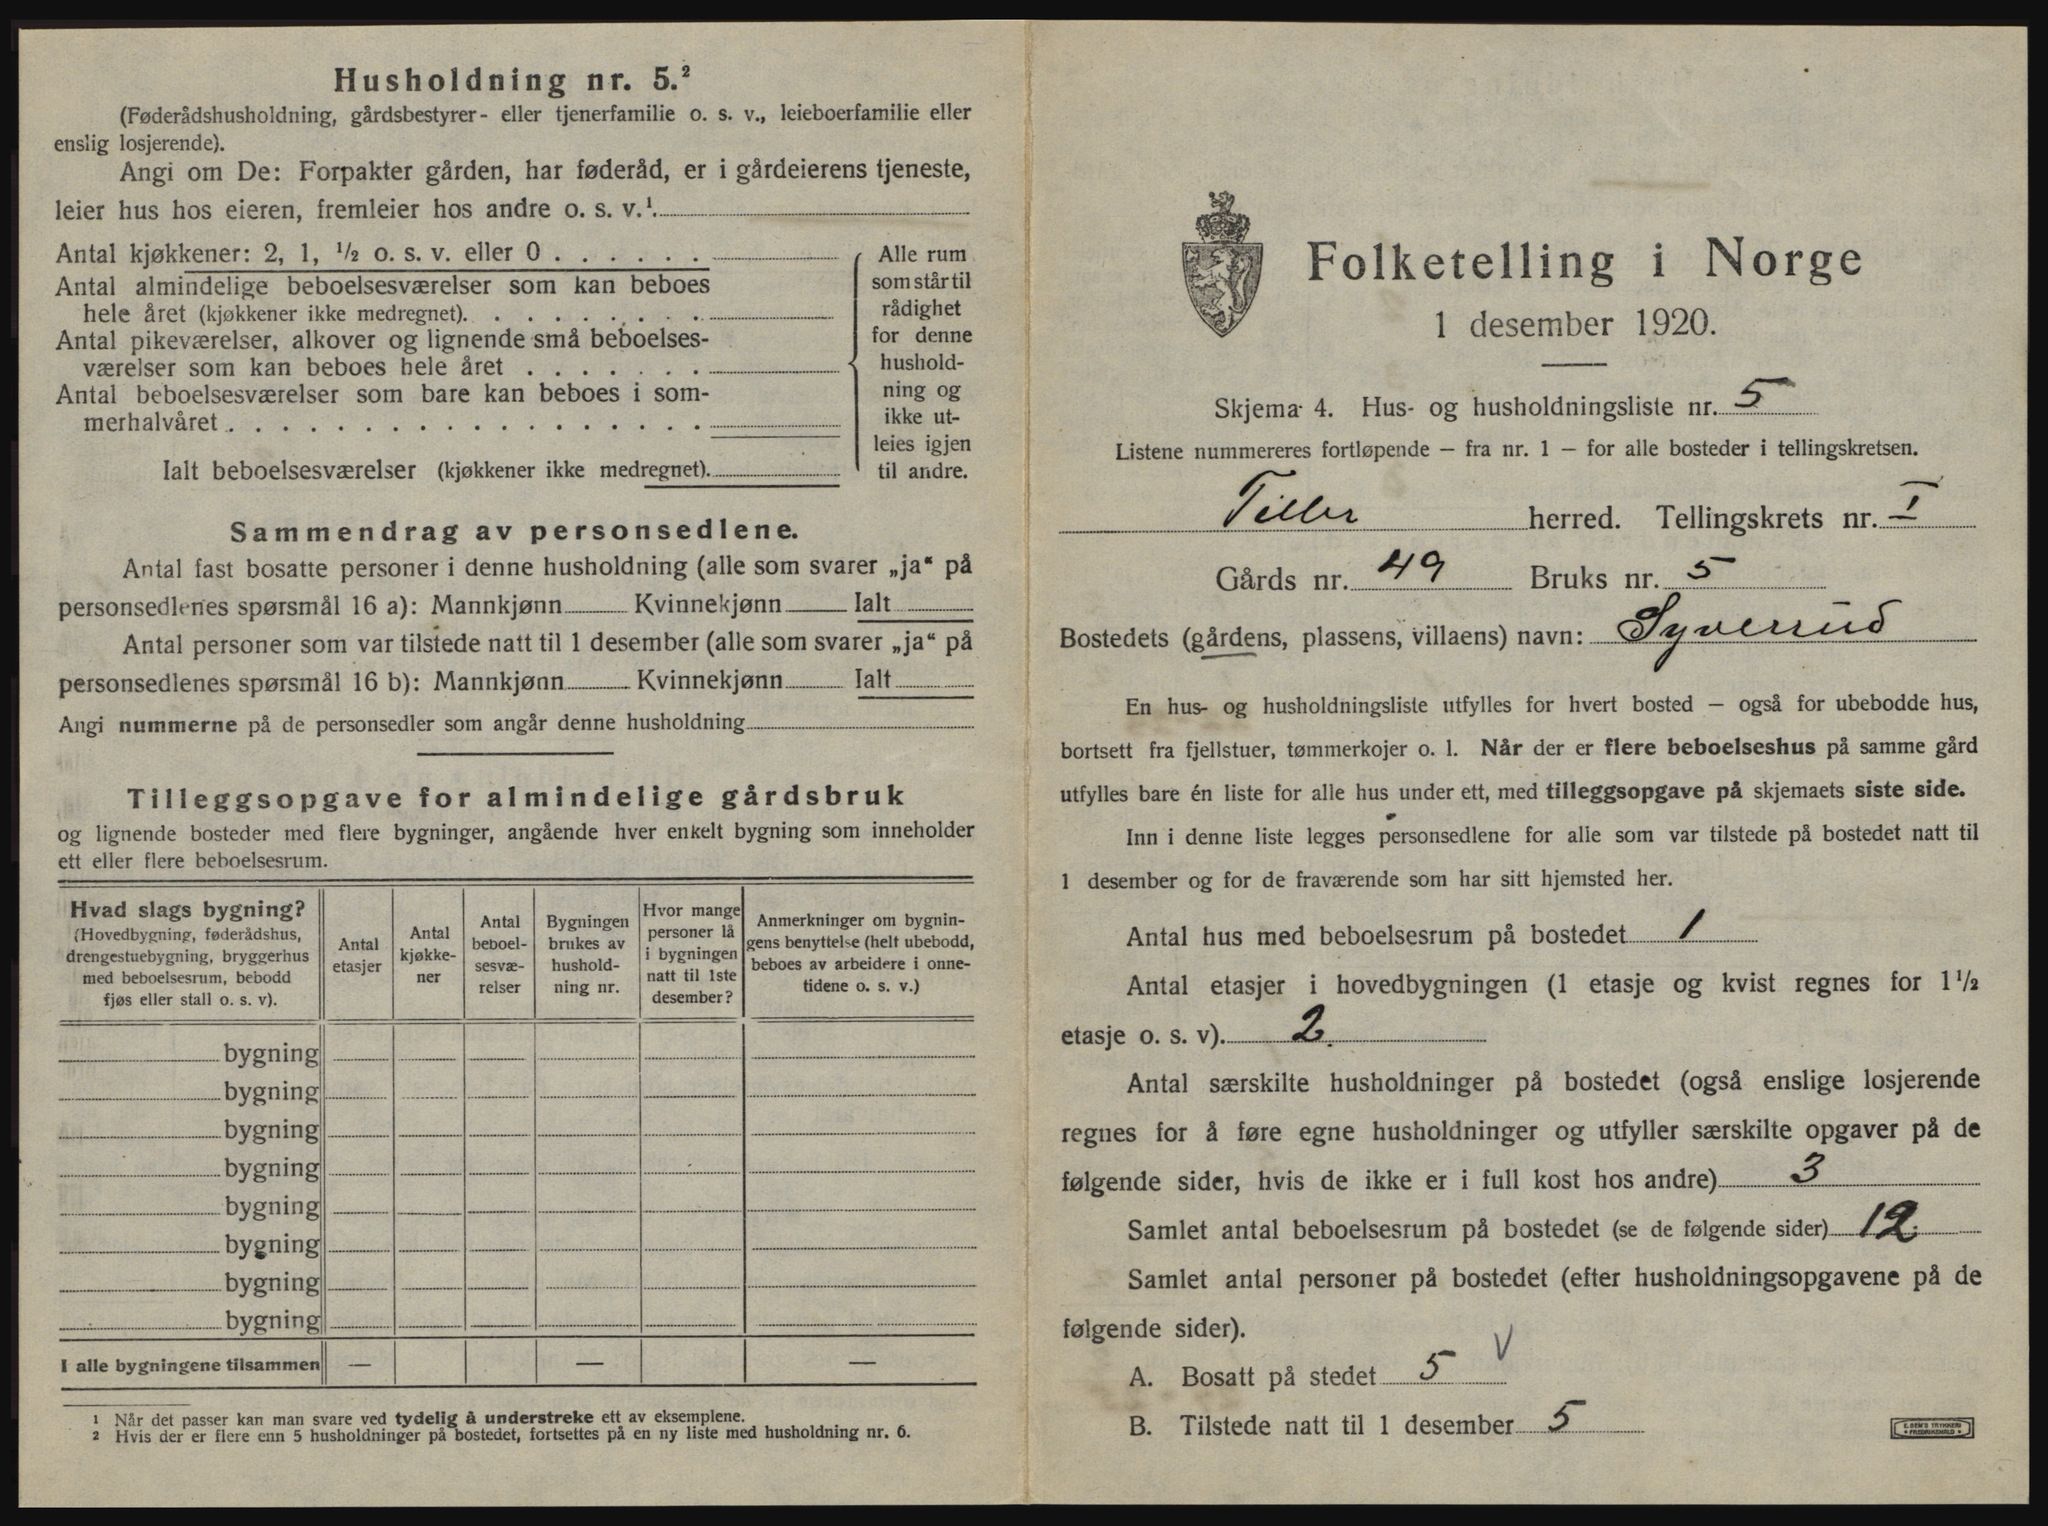 Husholdning nr. 5.²
(Føderådshusholdning, gårdsbestyrer- eller tjenerfamilie o. s. v., leieboerfamilie eller
enslig losjerende).
Angi om De: Forpakter gården, har føderåd, er i gårdeierens tjeneste,
leier hus hos eieren, fremleier hos andre o. s. v.¹.
Antal kjøkkener: 2, 1, ½ o. s. v. eller 0 . . . . . .
Antal almindelige beboelsesværelser som kan beboes
hele året (kjøkkener ikke medregnet). . . . . . . . .
Antal pikeværelser, alkover og lignende små beboelses-
værelser som kan beboes hele året . . . . . . .
Antal beboelsesværelser som bare kan beboes i som-
merhalvåret . . . . . . . . . . . . . . . . . .
Ialt beboelsesværelser (kjøkkener ikke medregnet).
Alle rum
som står til
rådighet
for denne
hushold-
ning og
ikke ut-
leies igjen
til andre.
Sammendrag av personsedlene.
Antal fast bosatte personer i denne husholdning (alle som svarer „ja“ på
personsedlenes spørsmål 16 a): Mannkjønn Kvinnekjønn Ialt
Antal personer som var tilstede natt til 1 desember (alle som svarer „ja“ på
personsedlenes spørsmål 16 b): Mannkjønn Kvinnekjønn Ialt
Angi nummerne på de personsedler som angår denne husholdning
Tilleggsopgave for almindelige gårdsbruk
og lignende bosteder med flere bygninger, angående hver enkelt bygning som inneholder
ett eller flere beboelsesrum.
Hvad slags bygning?
(Hovedbygning, føderådshus,
drengestuebygning, bryggerhus
med beboelsesrum, bebodd
fjøs eller stall o. s. v).
Antal
etasjer
Antal
kjøkke-
ner
Antal
beboel-
sesvæ-
relser
Bygningen
brukes av
hushold-
ning nr.
Hvor mange
personer lå
i bygningen
natt til 1ste
desember?
Anmerkninger om bygnin-
gens benyttelse (helt ubebodd,
beboes av arbeidere i onne-
tidene o. s. v.)
bygning
bygning
bygning
bygning
bygning
bygning
bygning
bygning
I alle bygningene tilsammen — — —
¹ Når det passer kan man svare ved tydelig å understreke ett av eksemplene.
² Hvis der er flere enn 5 husholdninger på bostedet, fortsettes på en ny liste med husholdning nr. 6.
Folketelling i Norge
1 desember 1920.
Skjema 4. Hus- og husholdningsliste nr. 5
Listene nummereres fortløpende — fra nr. 1 — for alle bosteder i tellingskretsen.
Tiller herred. Tellingskrets nr. I
Gårds nr. 49 Bruks nr. 5
Bostedets (gårdens, plassens, villaens) navn: Syverrud
En hus- og husholdningsliste utfylles for hvert bosted — også for ubebodde hus,
bortsett fra fjellstuer, tømmerkojer o. l. Når der er flere beboelseshus på samme gård
utfylles bare én liste for alle hus under ett, med tilleggsopgave på skjemaets siste side.
Inn i denne liste legges personsedlene for alle som var tilstede på bostedet natt til
1 desember og for de fraværende som har sitt hjemsted her.
Antal hus med beboelsesrum på bostedet 1
Antal etasjer i hovedbygningen (1 etasje og kvist regnes for 1½
etasje o. s. v). 2.
Antal særskilte husholdninger på bostedet (også enslige losjerende
regnes for å føre egne husholdninger og utfyller særskilte opgaver på de
følgende sider, hvis de ikke er i full kost hos andre) 3
Samlet antal beboelsesrum på bostedet (se de følgende sider) 12.
Samlet antal personer på bostedet (efter husholdningsopgavene på de
følgende sider).
A. Bosatt på stedet 5 V
B. Tilstede natt til 1 desember 5
E. SEM'S TRYKKERI
FREDRIKSHALD